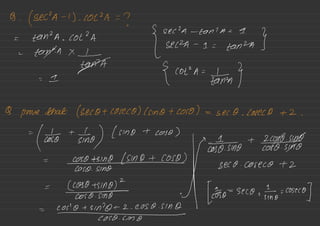 Q. (sec²A - 1). cot²A = ?
= tan²A . cot²A
= tan²A × 1/tan²A
= 1
{ sec²A - tan²A = 1
sec²A - 1 = tan²A }
{ cot²A = 1/tan²A }
Q prove that (secθ + cosecθ) (sinθ + cosθ) = secθ . cosecθ + 2.
= (1/cosθ + 1/sinθ) (sinθ + cosθ)
= cosθ + sinθ/cosθ. sinθ (sinθ + cosθ)
= (cosθ + sinθ)²/cosθ. sinθ
= cos²θ + sin²θ + 2. cosθ. sinθ/cosθ. sinθ
1/cosθ sinθ + 2 cosθ sinθ/cosθ sinθ
secθ cosecθ + 2
[ 1/cosθ = secθ, 1/sinθ = cosecθ ]